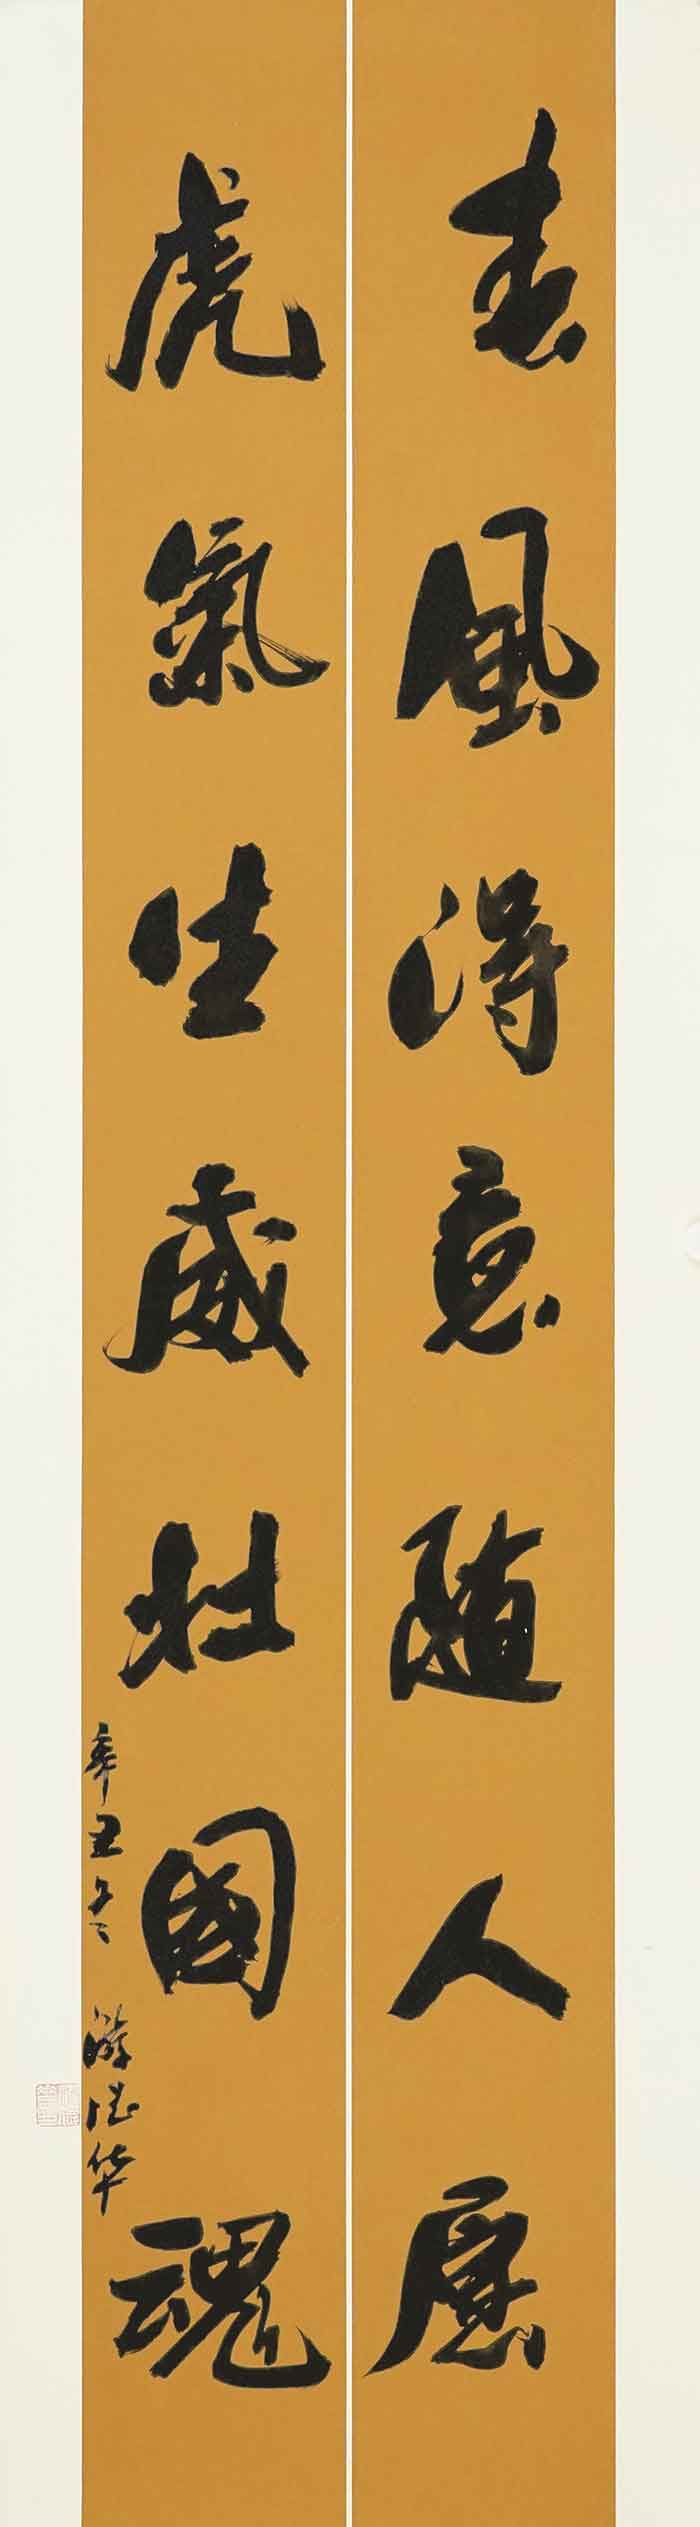 春風得意隨人愿
虎氣生威壯國魂
辛丑冬 游德华